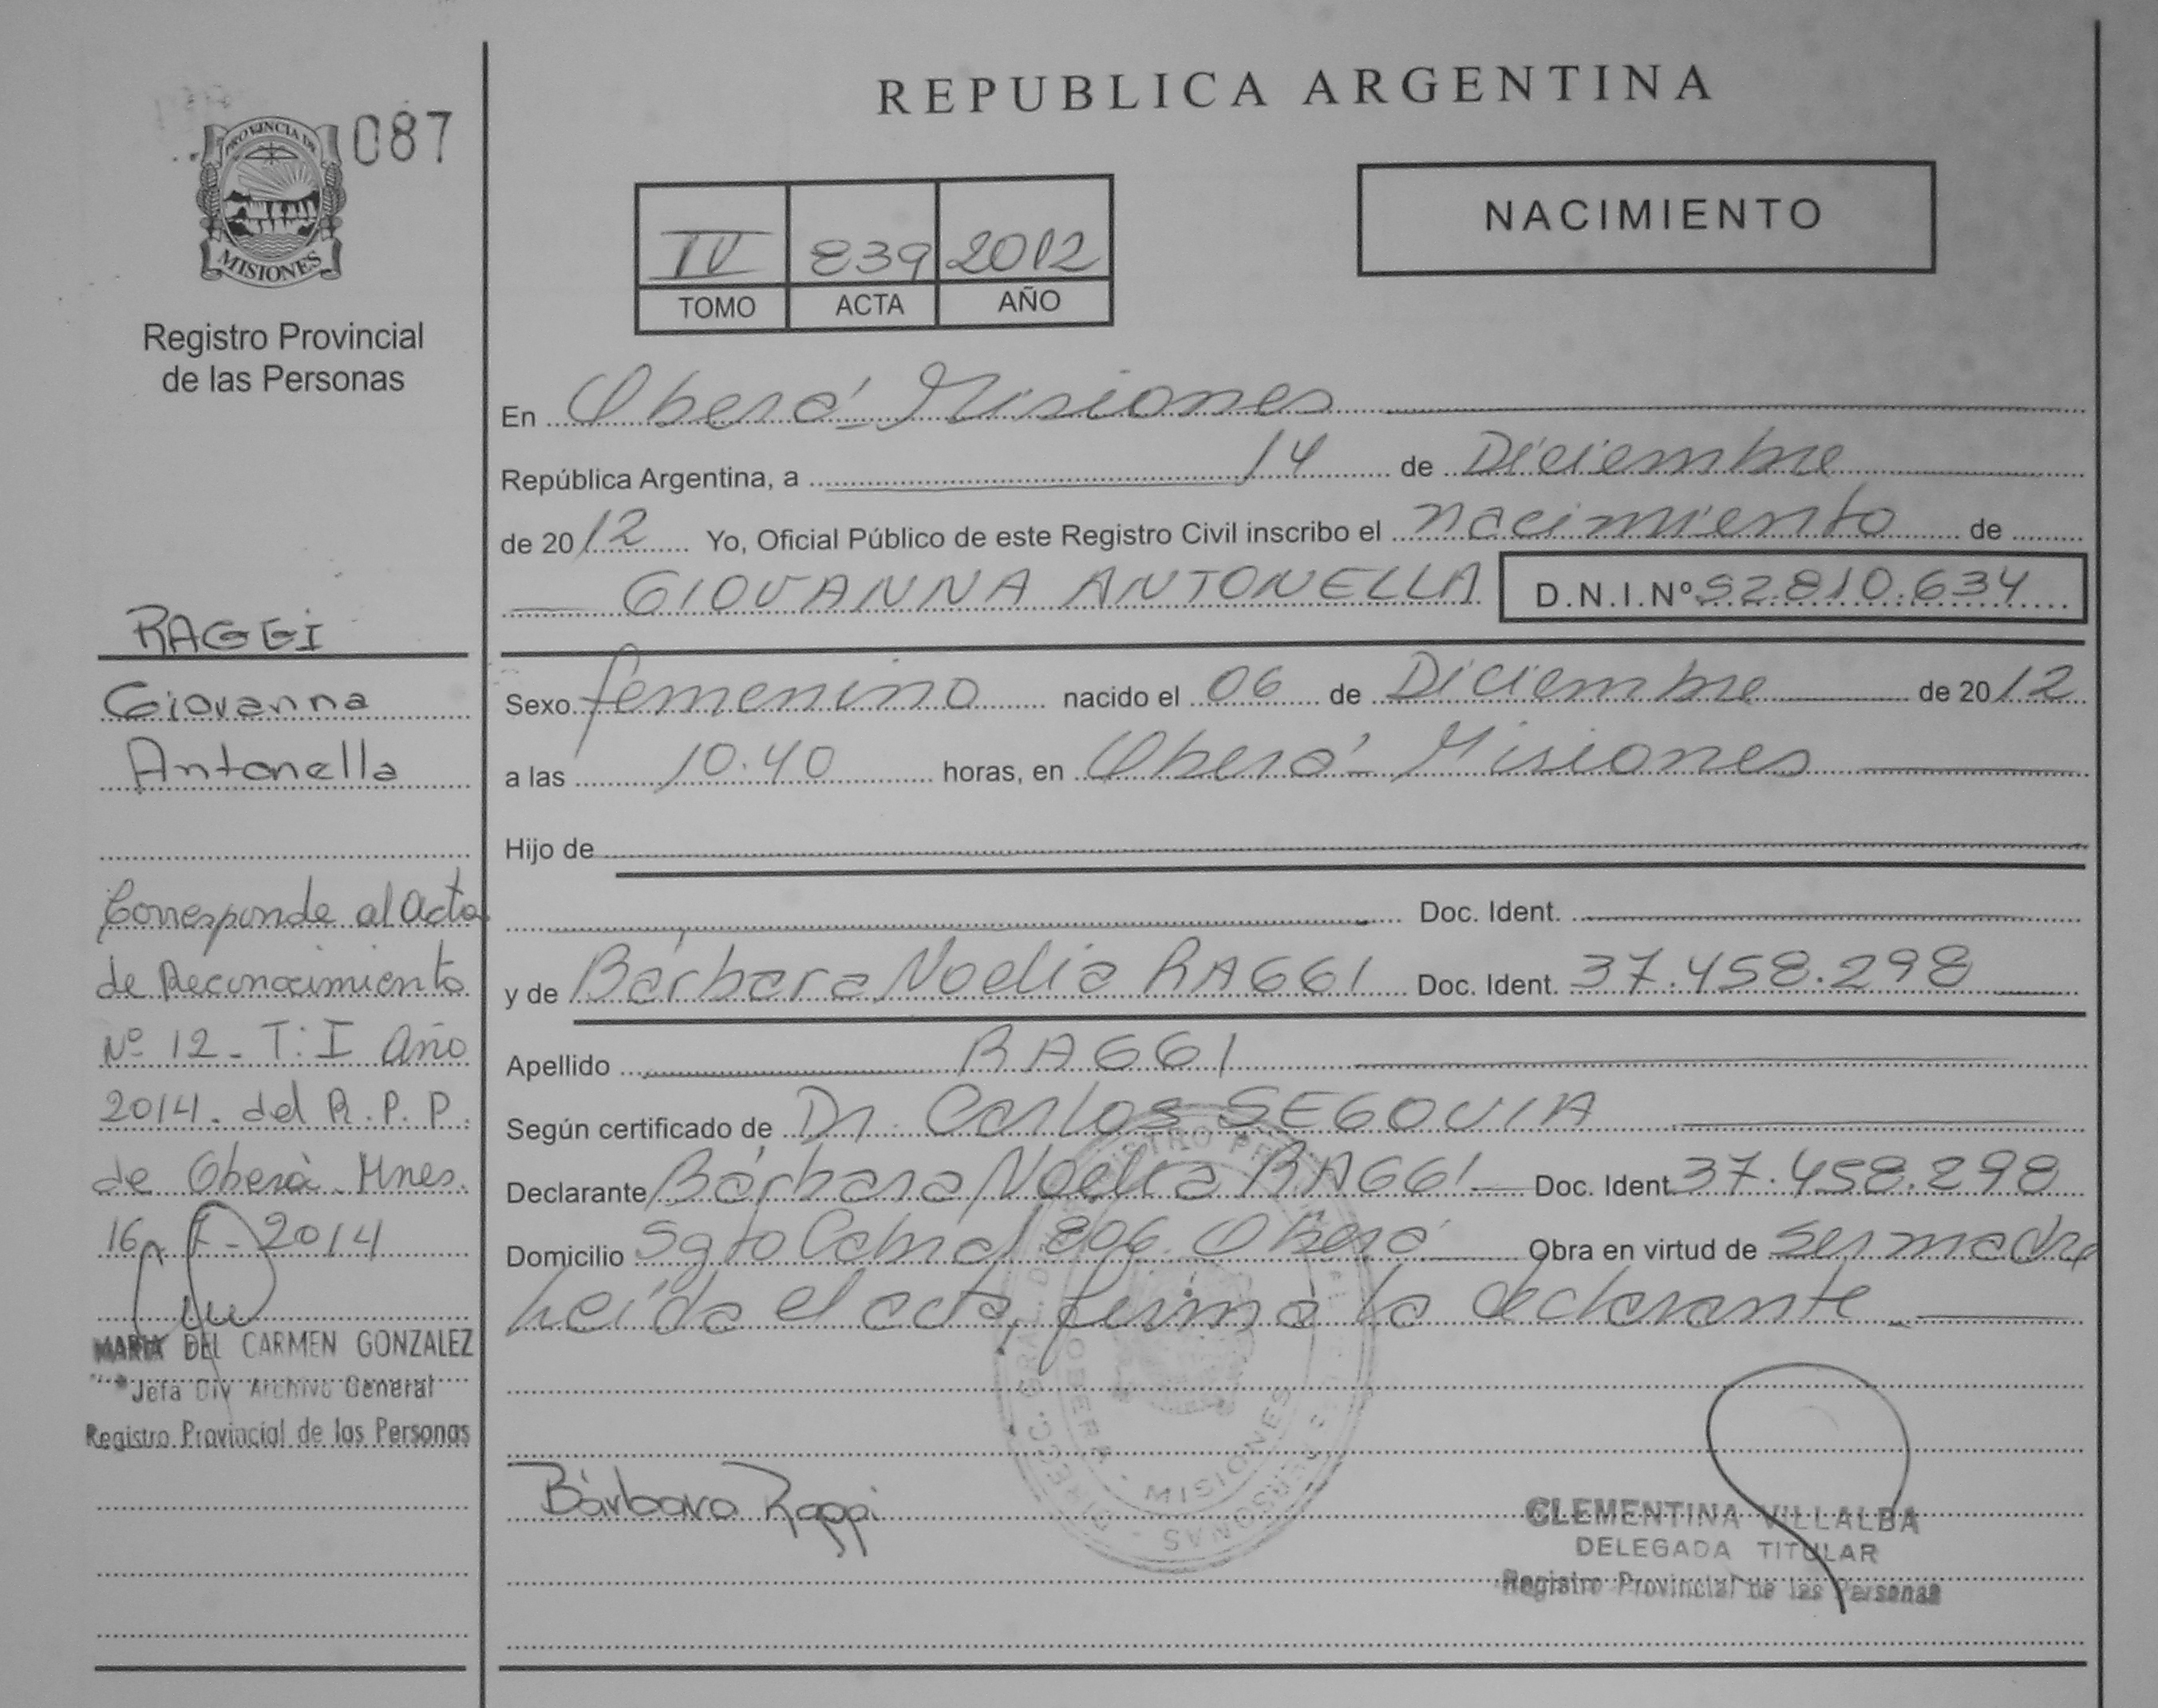 087
PROVINCIA DE
MISIONES
Registro Provincial
de las Personas
RAGGI
Giovanna
Antonella
Corresponde al Acta
de Reconocimiento
Nº 12 - T: I Año
2014. del R.P.P.
de Oberà Mnes.
2014
MARIA DEL CARMEN GONZALEZ
Jefa Div Archivo General
Registro Provincial de las Personas
REPUBLICA ARGENTINA
NACIMIENTO
IV 839 2012
TOMO ACTA AÑO
En Oberá Misiones
República Argentina, a 14 de Diciembre
de 2012 Yo, Oficial Público de este Registro Civil inscribo el nacimiento de
GIOVANNA ANTONELLA D.N.I.Nº 52.810.634
Sexo femenino nacido el 06 de Diciembre de 2012
a las 10.40 horas, en Oberá Misiones
Hijo de
Doc. Ident.
y de Bárbara Noelia RAGGI Doc. Ident. 37.458.298
Apellido RAGGI
Según certificado de Dr. Carlos SEGOVIA
Declarante Bárbara Noelia RAGGI Doc. Ident. 37.458.298
Domicilio Sgto Cabral 806. Oberá Obra en virtud de ser madre
Leída el acta, firma la declarante
Bárbara Raggi
OBERA - MISIONES
CLEMENTINA VILLALBA
DELEGADA TITULAR
Registro Provincial de las Personas